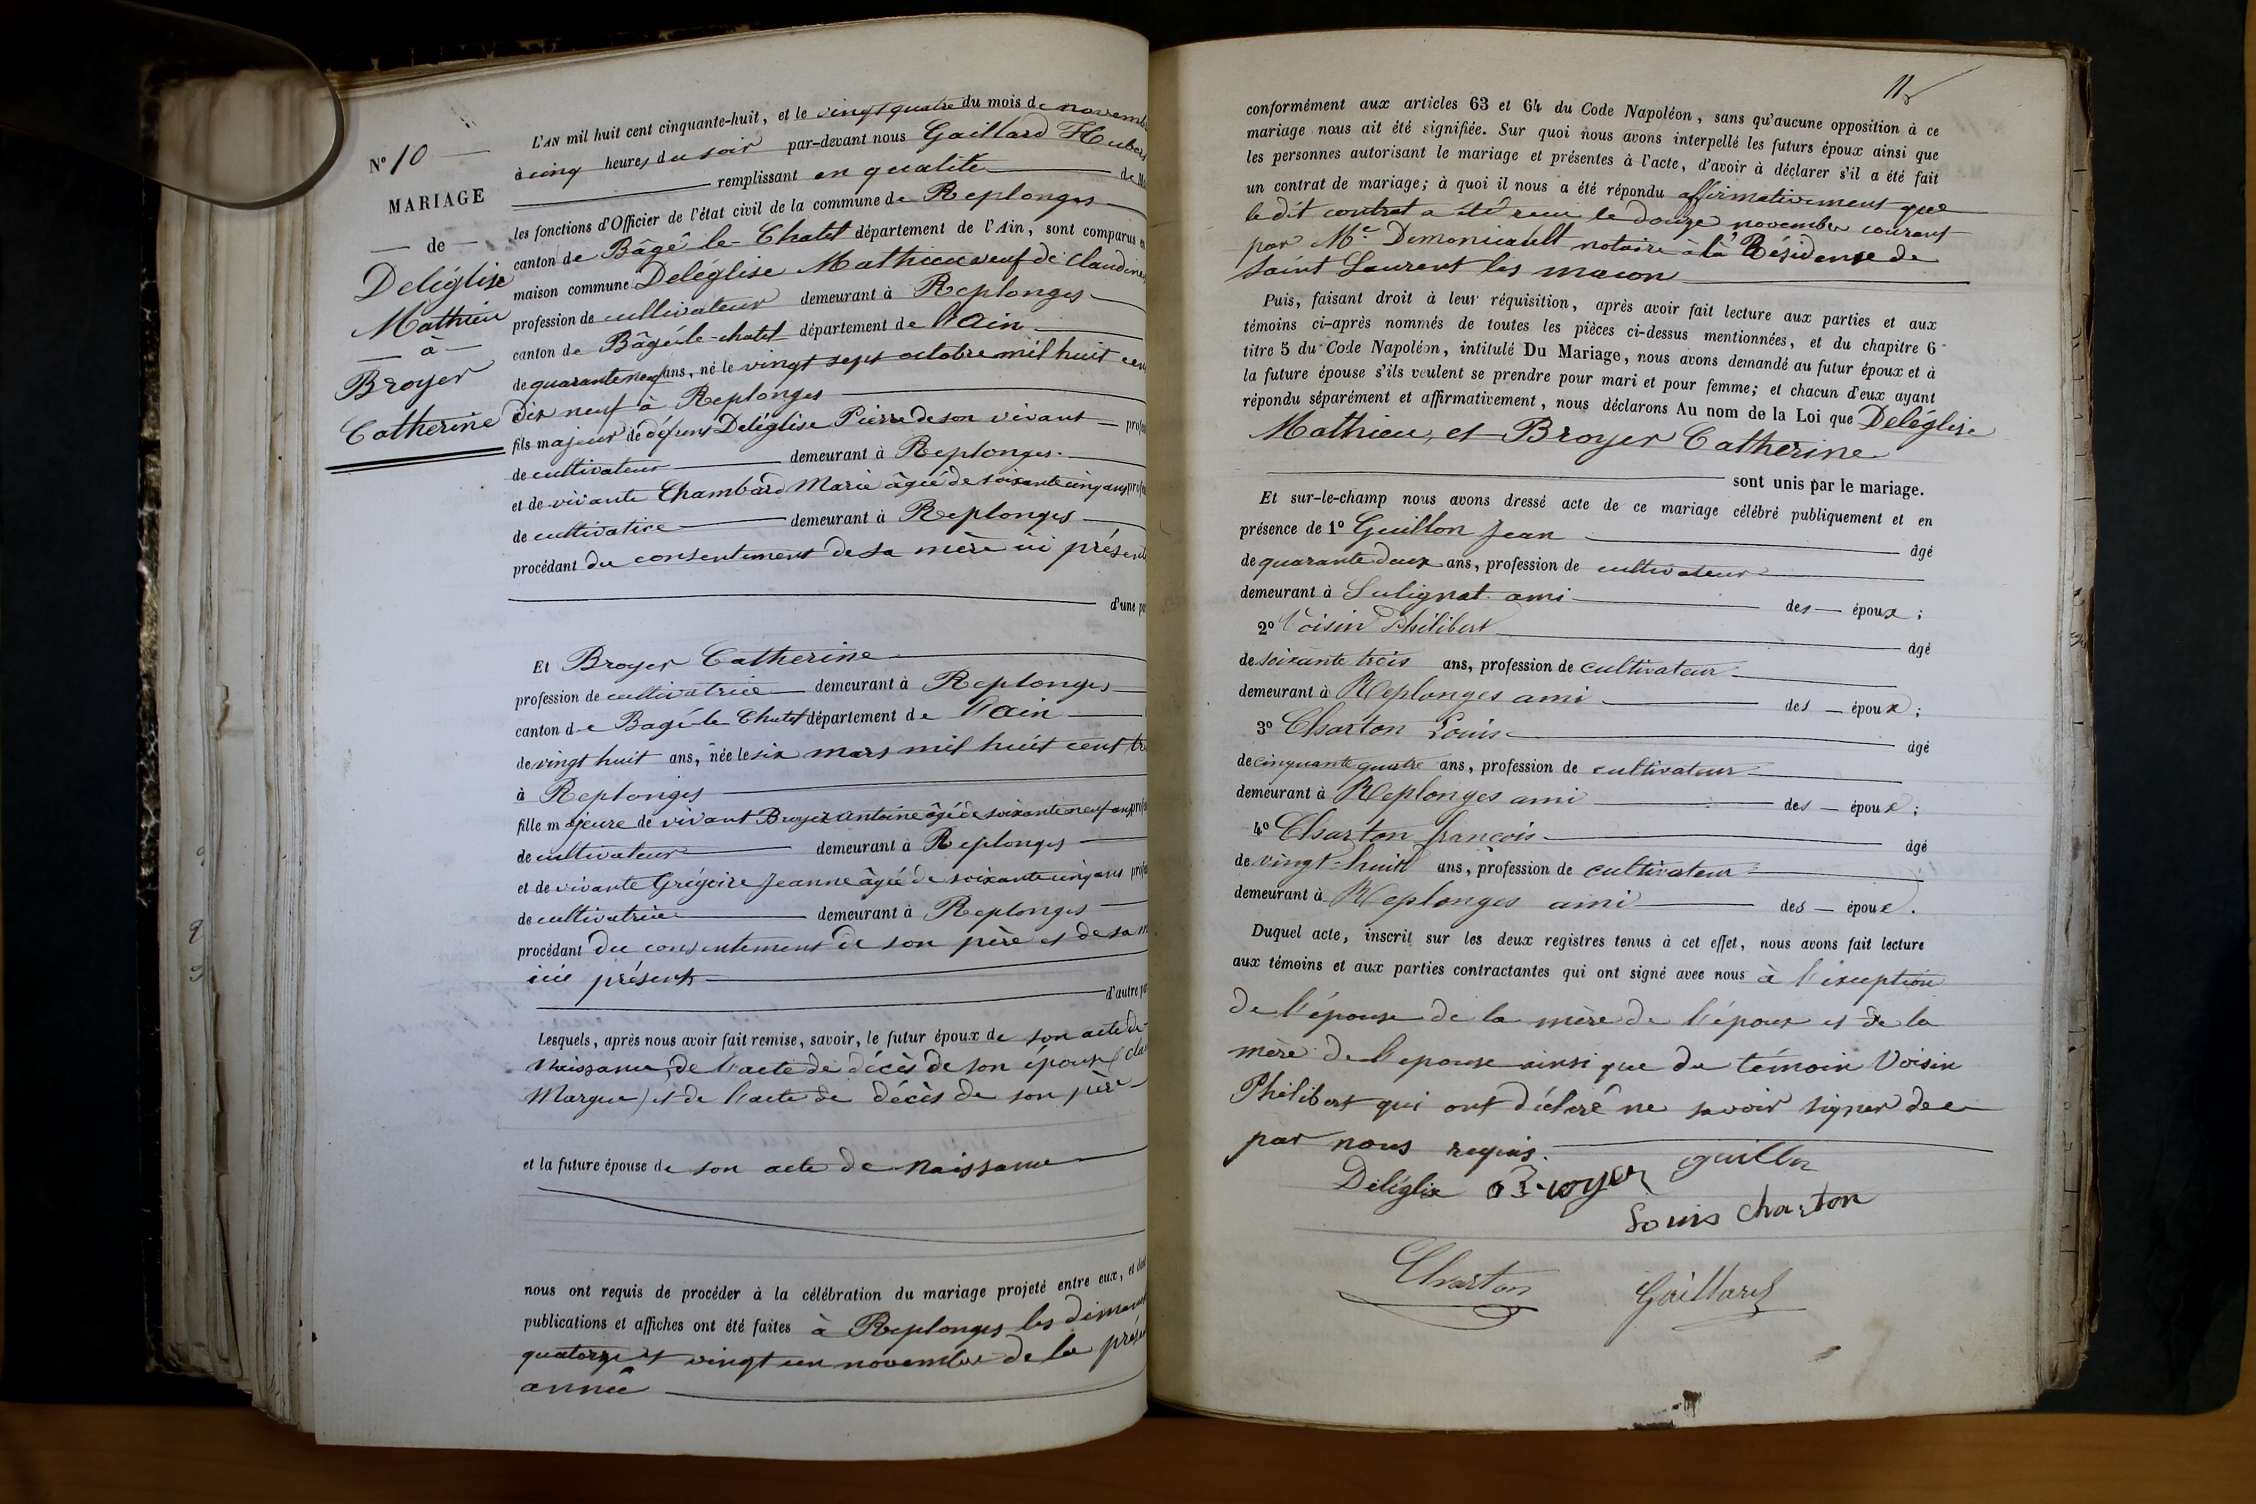 N° 10
MARIAGE
de
Deléglise
Mathieu
à
Broyer
Catherine
L'AN mil huit cent cinquante-huit, et le vingt quatre du mois de novemb
à cinq heures du soir par-devant nous Gaillard Huber
remplissant en qualité de M
les fonctions d'Officier de l'état civil de la commune de Replonges
canton de Bâgé-le-Chatel département de l'Ain, sont comparus en
maison commune Deléglise Mathieu veuf de Claudine
profession de cultivateur demeurant à Replonges
canton de Bâgé-le-chatel département de l'Ain
de quarante neuf ans, né le vingt sept octobre mil huit cen
dix neuf à Replonges
fils majeur de défunt Deléglise Pierre de son vivant profes
de cultivateur demeurant à Replonges
et de vivante Chambard Marie âgée de soixante cinq ans profes
de cultivatrice demeurant à Replonges
procédant du consentement de sa mère ici présente
d'une par
Et Broyer Catherine
profession de cultivatrice demeurant à Replonges
canton de Bagé-le-Chatel département de l'Ain
de vingt huit ans, née le six mars mil huit cent tr
à Replonges
fille majeure de vivant Broyer Antoine âgé de soixante neuf ans profes
de cultivateur demeurant à Replonges
et de vivante Grégoire Jeanne âgée de soixante cinq ans profes
de cultivatrice demeurant à Replonges
procédant du consentement de son père et de sa m
ici présents
d'autre par
Lesquels, après nous avoir fait remise, savoir, le futur époux de son acte de
Naissance, de l'acte de décès de son épouse (Cla
Margue) et de l'acte de décès de son père
et la future épouse de son acte de Naissance
nous ont requis de procéder à la célébration du mariage projeté entre eux, et dont
publications et affiches ont été faites à Replonges les dimanch
quatorze et vingt un novembre de la présen
année
11
conformément aux articles 63 et 64 du Code Napoléon, sans qu'aucune opposition à ce
mariage nous ait été signifiée. Sur quoi nous avons interpellé les futurs époux ainsi que
les personnes autorisant le mariage et présentes à l'acte, d'avoir à déclarer s'il a été fait
un contrat de mariage; à quoi il nous a été répondu affirmativement que
le dit contrat a été reçu le douze novembre courant
par Me Demoniault notaire à la Résidence de
Saint Laurent les macon
Puis, faisant droit à leur réquisition, après avoir fait lecture aux parties et aux
témoins ci-après nommés de toutes les pièces ci-dessus mentionnées, et du chapitre 6
titre 5 du Code Napoléon, intitulé Du Mariage, nous avons demandé au futur époux et à
la future épouse s'ils veulent se prendre pour mari et pour femme; et chacun d'eux ayant
répondu séparément et affirmativement, nous déclarons Au nom de la Loi que Deléglise
Mathieu, et Broyer Catherine
sont unis par le mariage.
Et sur-le-champ nous avons dressé acte de ce mariage célébré publiquement et en
présence de 1° Guillon Jean âgé
de quarante deux ans, profession de cultivateur
demeurant à Sulignat ami des époux;
2° Voisin Philibert âgé
de soixante trois ans, profession de cultivateur
demeurant à Replonges ami des époux;
3° Charton Louis âgé
de cinquante quatre ans, profession de cultivateur
demeurant à Replonges ami des époux;
4° Charton françois âgé
de vingt-huit ans, profession de cultivateur
demeurant à Replonges ami des époux.
Duquel acte, inscrit sur les deux registres tenus à cet effet, nous avons fait lecture
aux témoins et aux parties contractantes qui ont signé avec nous à l'exception
de l'épouse de la mère de l'époux et de la
mère de l'epouse ainsi que du témoin Voisin
Philibert qui ont déclaré ne savoir signer de ce
par nous requis.
Deléglise Broyer guillon
Louis charton
Charton Gaillard